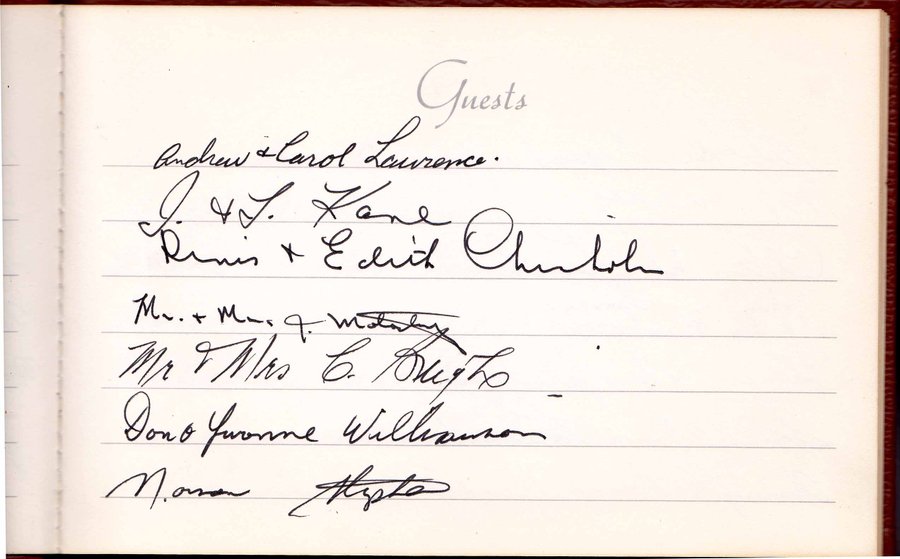 Guests
Andrew & Carol Lawrence.
J. & L. Kane
Denis & Edith Chisholm
Mr. & Mrs. J.
Mr & Mrs C.
Don & Yvonne Williamson
Norman